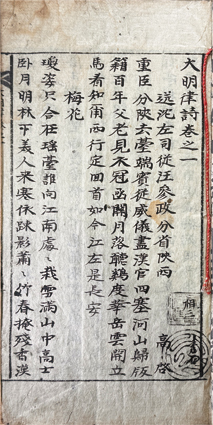 大明律詩卷之一
送沈左司從汪參政分省陝西
高啓
重臣分陝去臺端賓從威儀盡漢官四塞河山歸版
籍百年父老見衣冠函關月落聽鷄度華岳雲開立
馬看知爾西行定回首如今江左是長安
梅花
瓊姿只合在瑤臺誰向江南處〻栽雪滿山中高士
卧月明林下美人来寒依疎影蕭〻竹春掩殘香漠